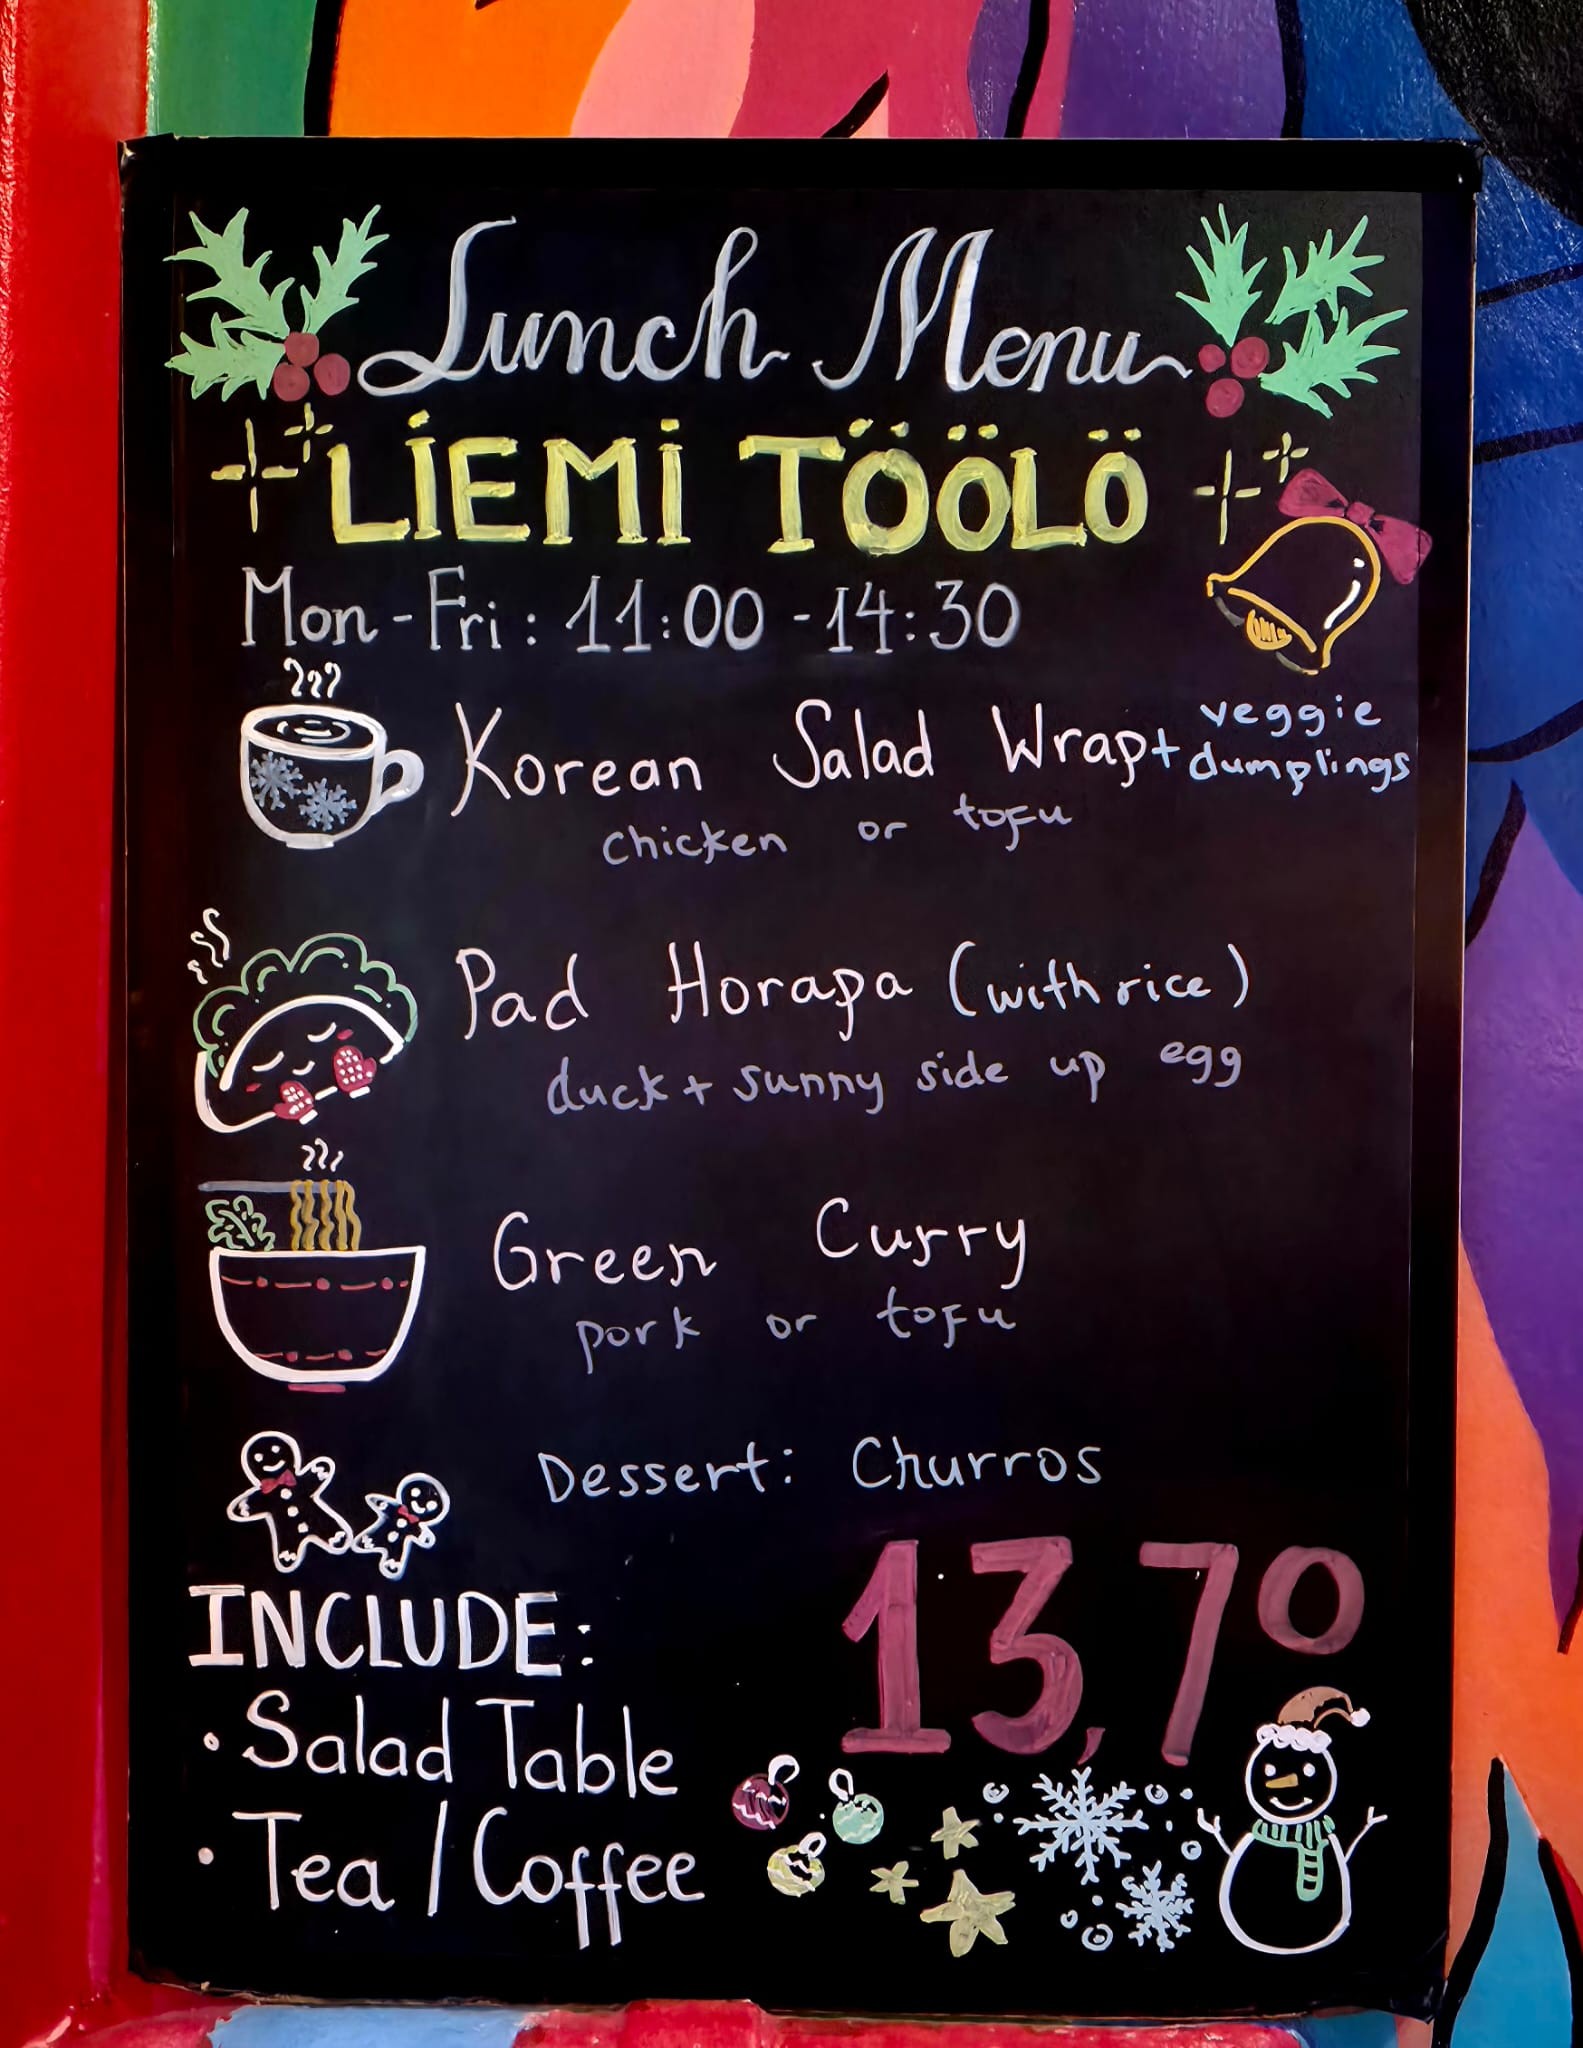 Lunch Menu
LIEMI TÖÖLÖ
Mon-Fri: 11:00 - 14:30
Korean Salad Wrap + veggie dumplings
chicken or tofu
Pad Horapa (with rice)
duck + sunny side up egg
Green Curry
pork or tofu
Dessert: Churros
13,70
INCLUDE:
• Salad Table
• Tea / Coffee